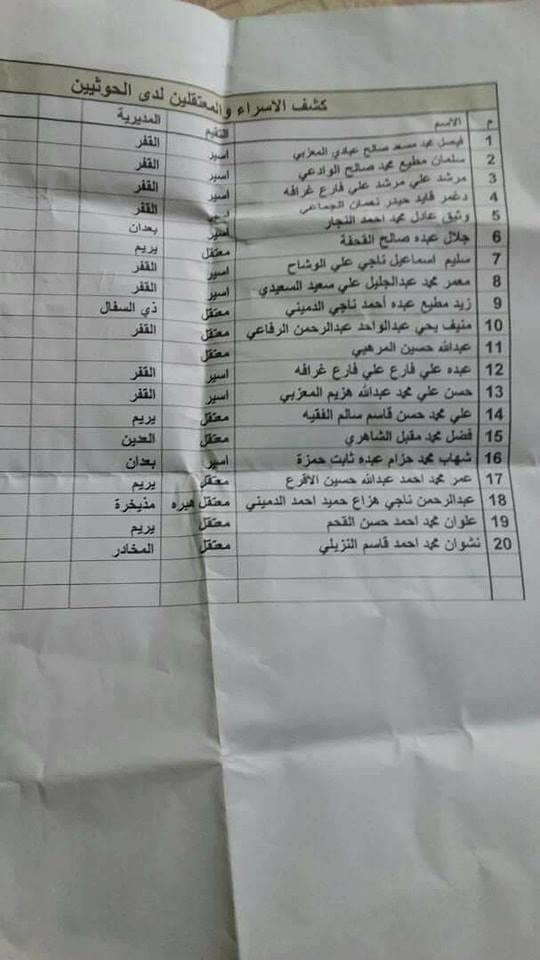 كشف الاسراء والمعتقلين لدى الحوثيين
م الاسم التقيم المديرية
1 فيصل محمد مسعد صالح عبادي المعزبي اسير القفر
2 سلمان مطيع محمد صالح الوادعي اسير القفر
3 مرشد علي مرشد علي فارع غرافه اسير القفر
4 دغمر قايد حيدر نعمان الجماعي القفر
5 وثيق عادل محمد احمد النجار اسير بعدان
6 جلال عبده صالح القحفة معتقل يريم
7 سليم اسماعيل ناجي علي الوشاح اسير القفر
8 معمر محمد عبدالجليل علي سعيد السعيدي اسير القفر
9 زيد مطيع عبده أحمد ناجي الدميني معتقل ذي السفال
10 منيف يحي عبدالواحد عبدالرحمن الرفاعي معتقل القفر
11 عبدالله حسين المرهبي معتقل
12 عبده علي فارع علي فارع غرافه اسير القفر
13 حسن علي محمد عبدالله هزيم المعزبي اسير القفر
14 علي محمد حسن قاسم سالم الفقيه معتقل يريم
15 فضل محمد مقبل الشاهري معتقل العدين
16 شهاب محمد حزام عبده ثابت حمزة اسير بعدان
17 عمر محمد احمد عبدالله حسين الاقرع معتقل يريم
18 عبدالرحمن ناجي هزاع حميد احمد الدميني معتقل هبره مذيخرة
19 علوان محمد احمد حسن القحم معتقل يريم
20 نشوان محمد احمد قاسم النزيلي معتقل المخادر